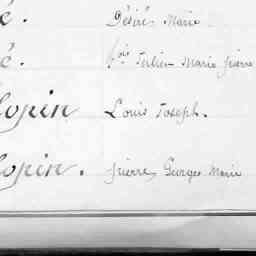 é. Désiré Marie
é. fois Julien Marie pierre
lopin Louis Joseph.
lopin. pierre, Georges Marie